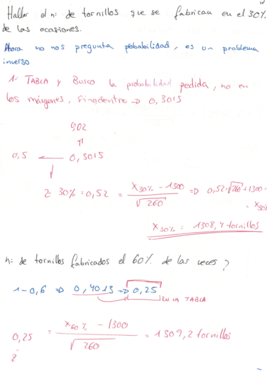 Hallar el ni de tornillos que se fabrican en el 30%
de las ocasiones.
Ahora no nos pregunta probabilidad, es un problema
inverso
1- TABLA y Busco la probabilidad pedida, no en
los márgenes. Finodentro → 0,3015
0,5 ← 0,3015
z 30% = 0,52 = (x30% - 1300) / √260 ⇒ 0,52·√260 + 1300 =
x30% = 1308,4 tornillos
ni de tornillos fabricados el 60% de las veces?
1-0,6 ⇒ 0,4013 → 0,25
EN LA TABLA
0,25 = (x60% - 1300) / √260 = 1309,2 tornillos
z